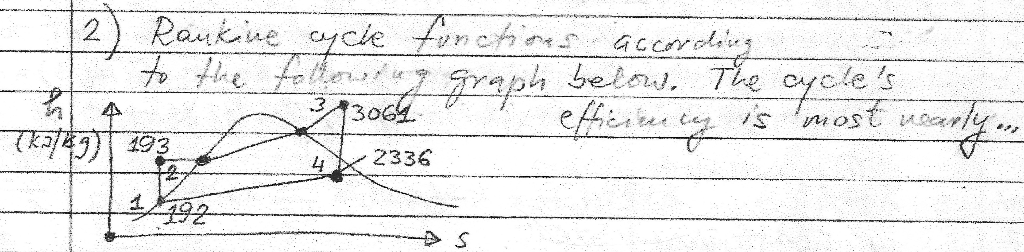 2) Rankine cycle functions according
to the following graph below. The cycle's
efficiency is most nearly...
h
(kJ/kg)
3
3061
193
2
4
2336
1
192
s